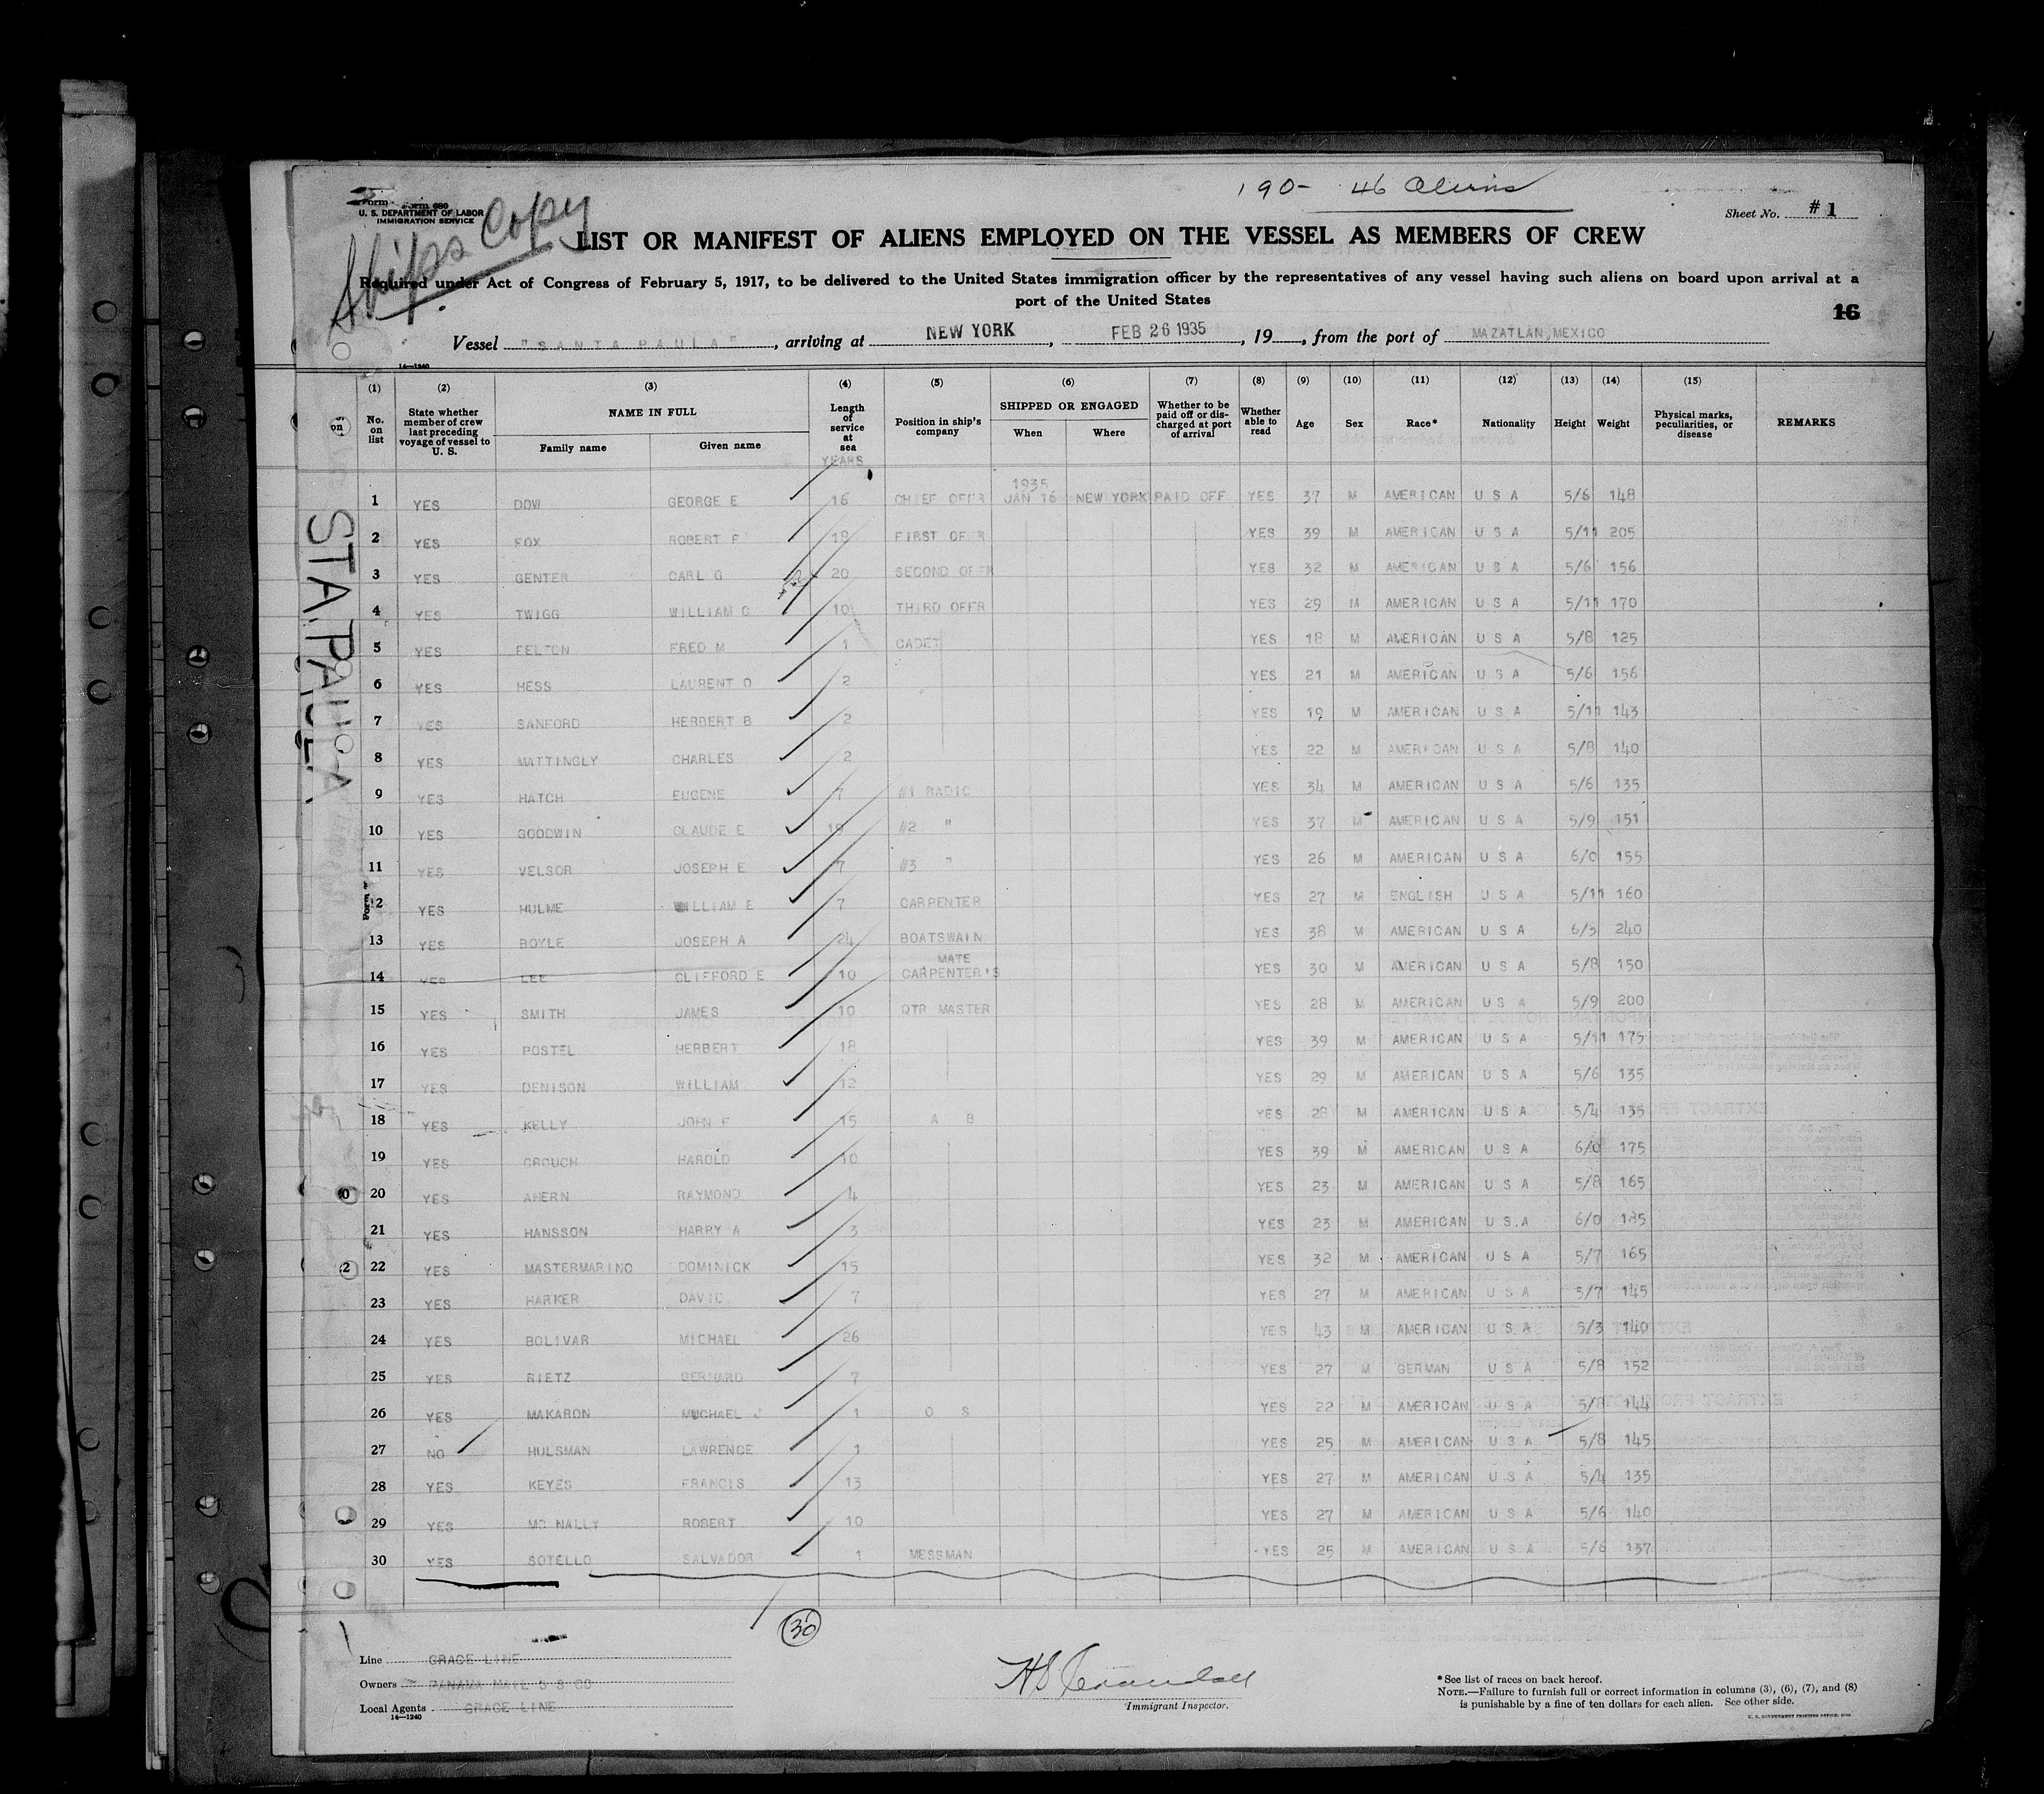 190- 46 Aliens
Form 680
U. S. DEPARTMENT OF LABOR
IMMIGRATION SERVICE
Ships Copy
Sheet No. #1
LIST OR MANIFEST OF ALIENS EMPLOYED ON THE VESSEL AS MEMBERS OF CREW
Required under Act of Congress of February 5, 1917, to be delivered to the United States immigration officer by the representatives of any vessel having such aliens on board upon arrival at a
port of the United States
16
Vessel "SANTA PAULA", arriving at NEW YORK, FEB 26 1935, 19, from the port of MAZATLAN, MEXICO
14—1240
(1) (2) (3) (4) (5) (6) (7) (8) (9) (10) (11) (12) (13) (14) (15)
No. on list State whether member of crew last preceding voyage of vessel to U. S. NAME IN FULL Family name Given name Length of service at sea YEARS Position in ship's company SHIPPED OR ENGAGED When Where Whether to be paid off or discharged at port of arrival Whether able to read Age Sex Race* Nationality Height Weight Physical marks, peculiarities, or disease REMARKS
1935
1 YES DOW GEORGE E 16 CHIEF OFFR JAN 16 NEW YORK PAID OFF YES 37 M AMERICAN U S A 5/6 148
2 YES FOX ROBERT F 18 FIRST OFFR YES 39 M AMERICAN U S A 5/11 205
3 YES GENTER CARL G 20 SECOND OFFR YES 32 M AMERICAN U S A 5/6 156
4 YES TWIGG WILLIAM C 10 THIRD OFFR YES 29 M AMERICAN U S A 5/11 170
5 YES FELTON FRED M 1 CADET YES 18 M AMERICAN U S A 5/8 125
6 YES HESS LAURENT O 2 YES 21 M AMERICAN U S A 5/6 156
7 YES SANFORD HERBERT B 2 YES 19 M AMERICAN U S A 5/11 143
8 YES MATTINGLY CHARLES 2 YES 22 M AMERICAN U S A 5/8 140
9 YES HATCH EUGENE 7 #1 RADIO YES 34 M AMERICAN U S A 5/6 135
10 YES GOODWIN CLAUDE E 19 #2 " YES 37 M AMERICAN U S A 5/9 151
11 YES VELSOR JOSEPH E 7 #3 " YES 26 M AMERICAN U S A 6/0 155
12 YES HULME WILLIAM E 7 CARPENTER YES 27 M ENGLISH U S A 5/11 160
13 YES BOYLE JOSEPH A 24 BOATSWAIN YES 38 M AMERICAN U S A 6/3 240
MATE
14 YES LEE CLIFFORD E 10 CARPENTER'S YES 30 M AMERICAN U S A 5/8 150
15 YES SMITH JAMES 10 QTR MASTER YES 28 M AMERICAN U S A 5/9 200
16 YES POSTEL HERBERT 18 YES 39 M AMERICAN U S A 5/11 175
17 YES DENISON WILLIAM 12 YES 29 M AMERICAN U S A 5/6 135
18 YES KELLY JOHN F 15 A B YES 28 M AMERICAN U S A 5/4 135
19 YES CROUCH HAROLD 10 YES 39 M AMERICAN U S A 6/0 175
20 YES AHERN RAYMOND 4 YES 23 M AMERICAN U S A 5/8 165
21 YES HANSSON HARRY A 3 YES 23 M AMERICAN U S A 6/0 185
22 YES MASTERMARINO DOMINICK 15 YES 32 M AMERICAN U S A 5/7 165
23 YES HARKER DAVID 7 YES 27 M AMERICAN U S A 5/7 145
24 YES BOLIVAR MICHAEL 26 YES 43 M AMERICAN U S A 5/3 140
25 YES RIETZ GERHARD 7 YES 27 M GERMAN U S A 5/8 152
26 YES MAKARON MICHAEL J 1 O S YES 22 M AMERICAN U S A 5/8 144
27 NO HULSMAN LAWRENCE 1 YES 25 M AMERICAN U S A 5/8 145
28 YES KEYES FRANCIS 13 YES 27 M AMERICAN U S A 5/4 135
29 YES MC NALLY ROBERT 10 YES 27 M AMERICAN U S A 5/6 140
30 YES SOTELLO SALVADOR 1 MESSMAN YES 25 M AMERICAN U S A 5/6 137
STA. PAULA
30
Line GRACE LINE
Owners PANAMA MAIL S S CO
Local Agents GRACE LINE
14—1240
H S Crandall
Immigrant Inspector.
*See list of races on back hereof.
NOTE.—Failure to furnish full or correct information in columns (3), (6), (7), and (8)
is punishable by a fine of ten dollars for each alien. See other side.
U. S. GOVERNMENT PRINTING OFFICE